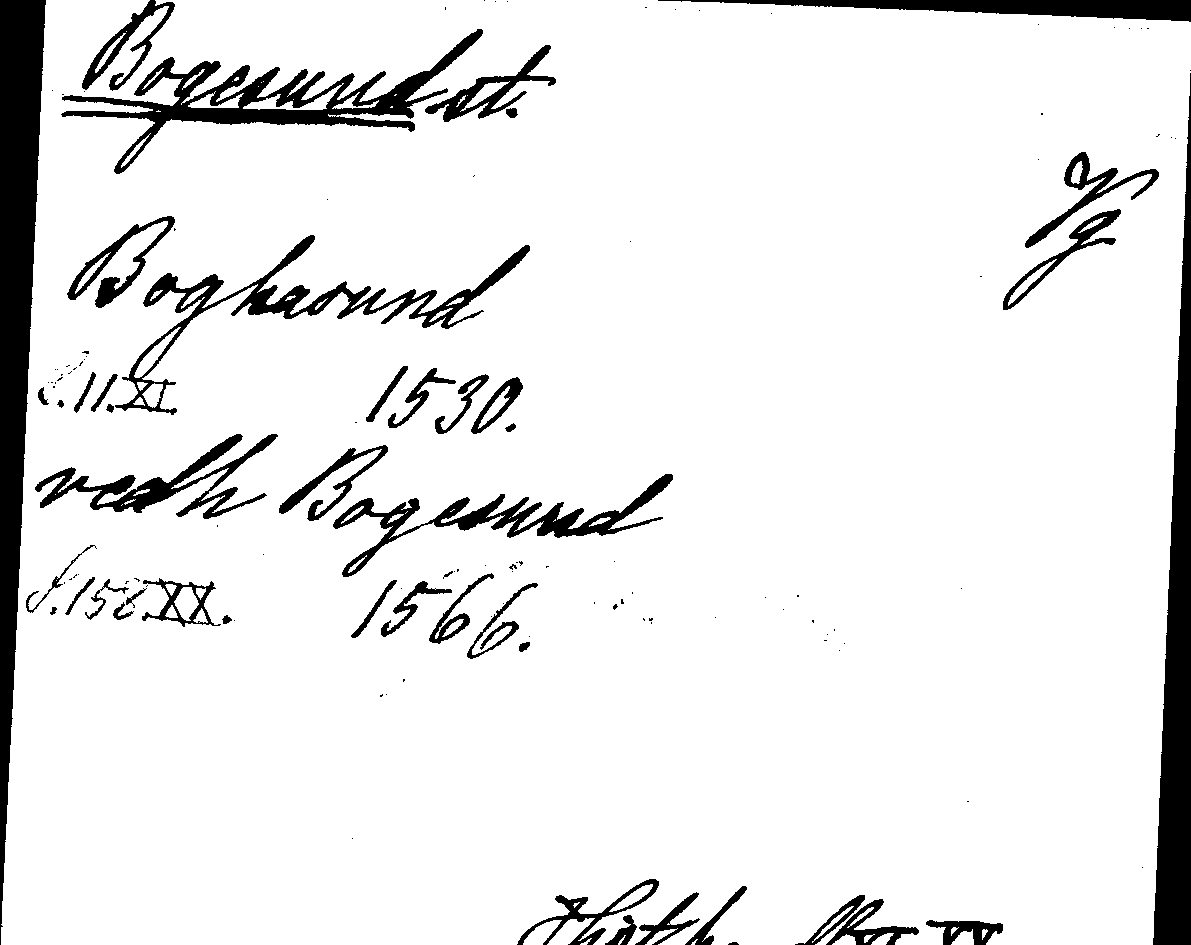 Bogesund st.
Vg
Boghasund
S. 11. XI. 1530.
vedh Bogesund
S. 158. XX. 1566.